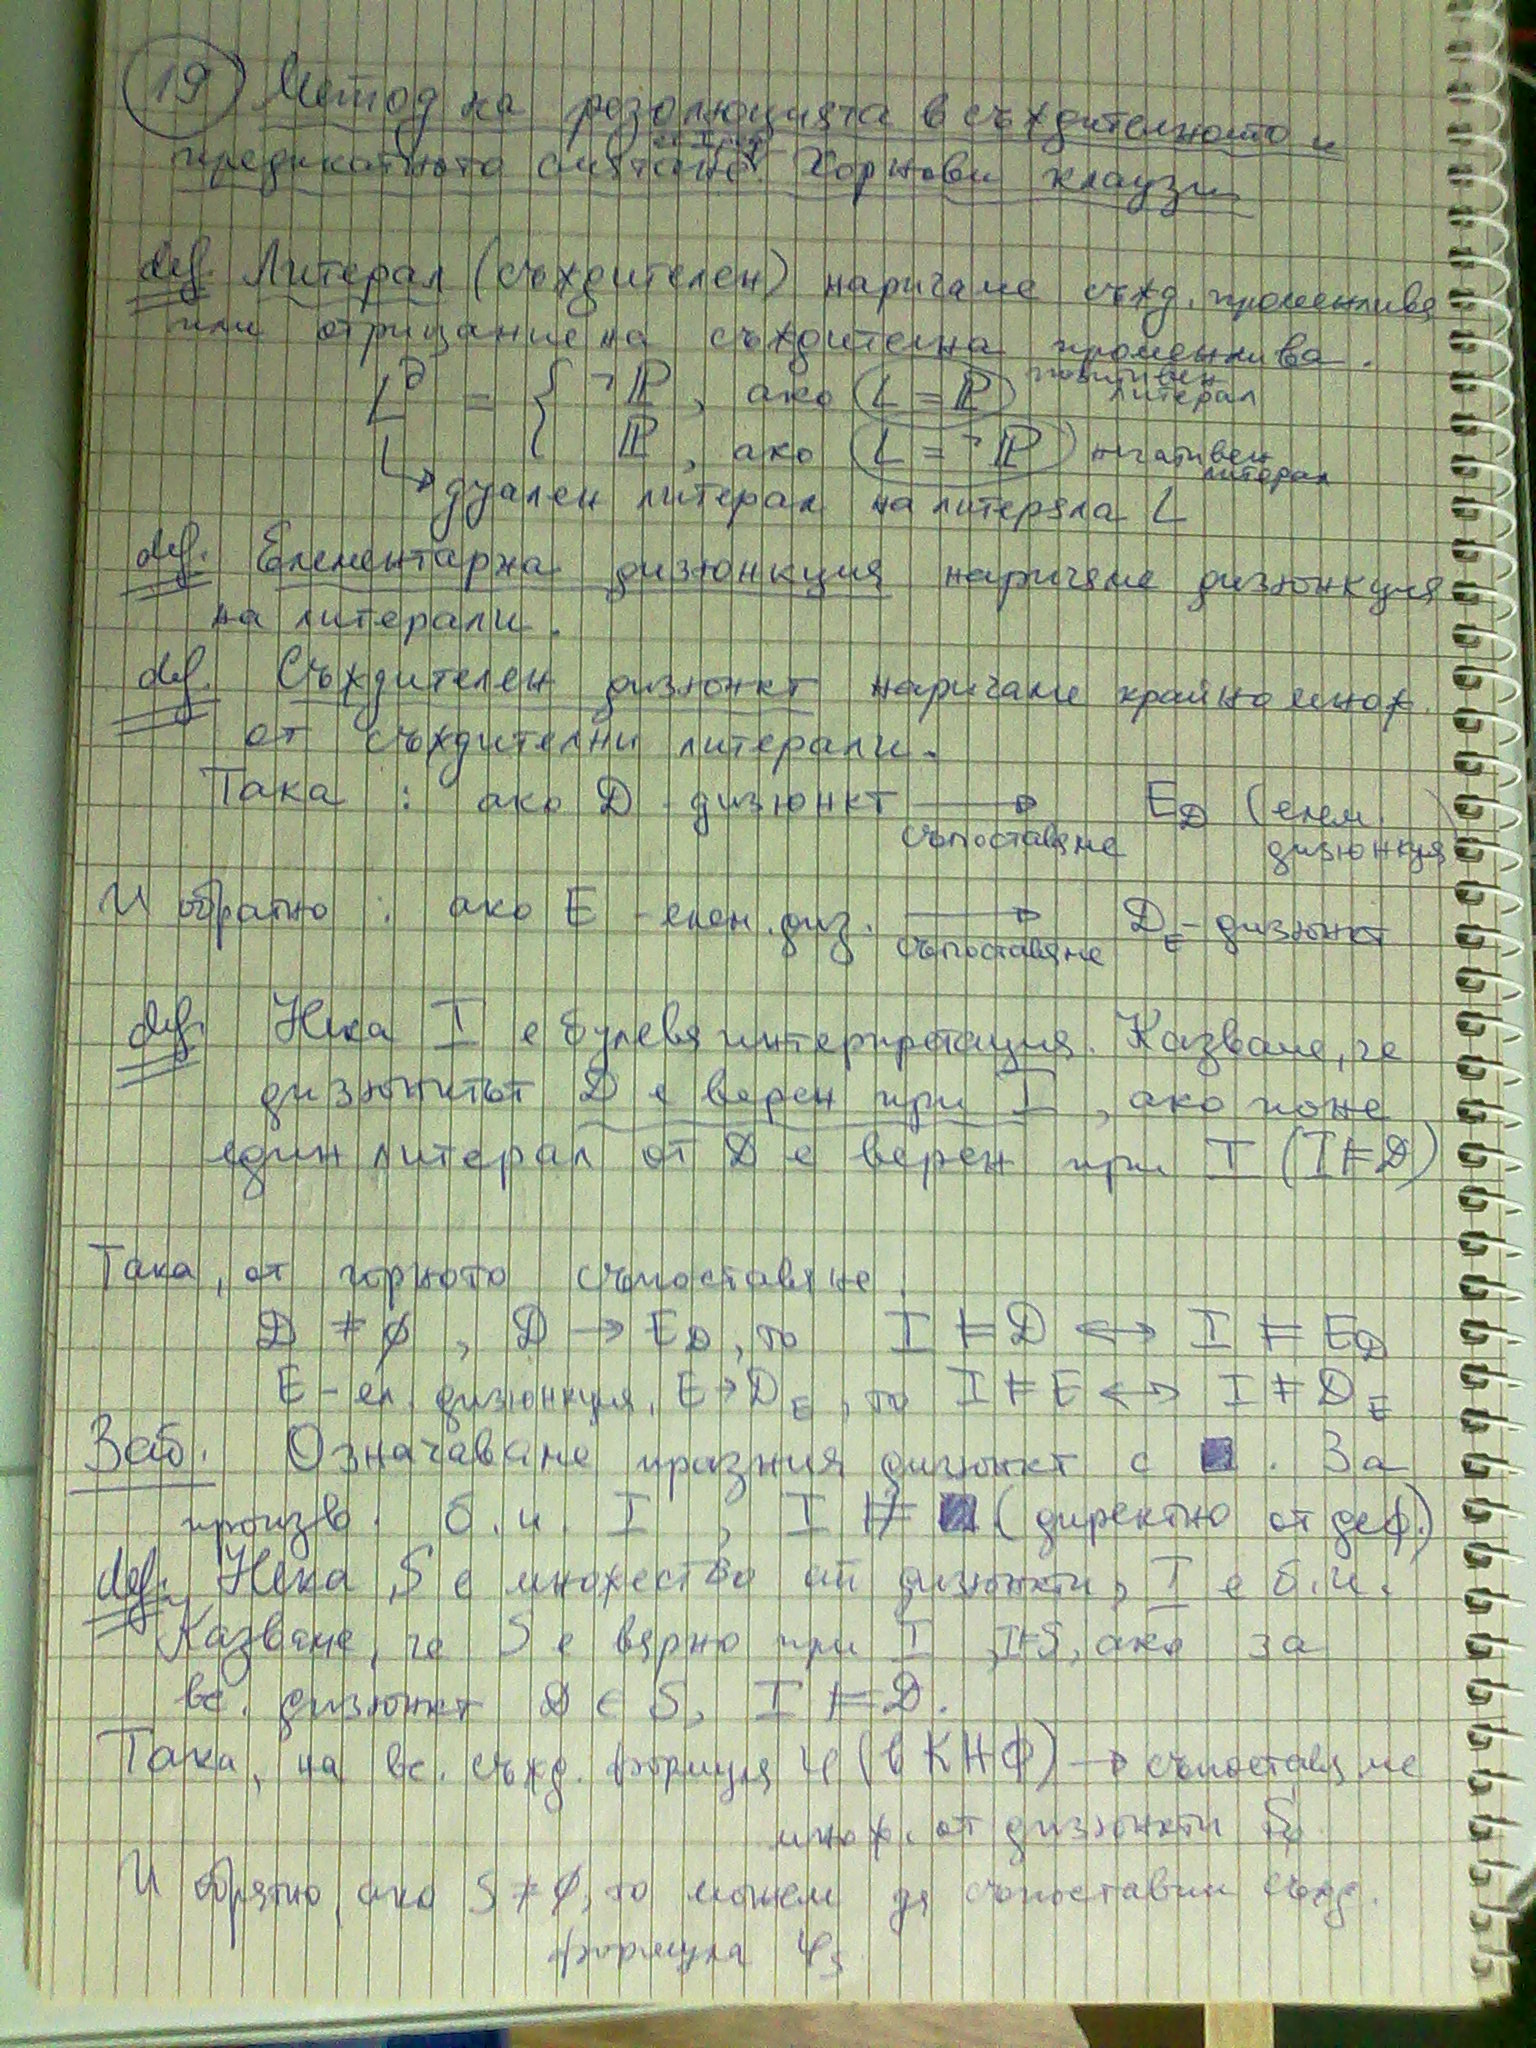 19 Метод на резолюцията в съждителното и
предикатното смятане. Хорнови клаузи
def. Литерал (съждителен) наричаме съжд. променлива
или отрицание на съждителна променлива.
L^∂ = { ¬P, ако L = P позитивен литерал
P, ако L = ¬P негативен литерал
↳ дуален литерал на литерала L
def. Елементарна дизюнкция наричаме дизюнкция
на литерали.
def. Съждителен дизюнкт наричаме крайно множ.
от съждителни литерали.
Така : ако D - дизюнкт → съпоставяме E_D (елем. дизюнкция)
И обратно : ако E - елем. диз. → съпоставяме D_E - дизюнкт
def. Нека I е булева интерпретация. Казваме, че
дизюнктът D е верен при I, ако поне
един литерал от D е верен при I (I ⊨ D)
Така, от горното съпоставяне
D ≠ ∅, D → E_D, то I ⊨ D ↔ I ⊨ E_D
E - ел. дизюнкция, E → D_E, то I ⊨ E ↔ I ⊨ D_E
Заб. Означаваме празния дизюнкт с ■. За
произв. б.и. I, I ⊭ ■ (директно от деф.)
def. Нека S е множество от дизюнкти, I е б.и.
Казваме, че S е вярно при I, I ⊨ S, ако за
вс. дизюнкт D ∈ S, I ⊨ D.
Така, на вс. съжд. формула φ (в КНФ) → съпоставяме
множ. от дизюнкти S_φ
И обратно, ако S ≠ ∅, то можем да съпоставим съжд.
формула φ_S